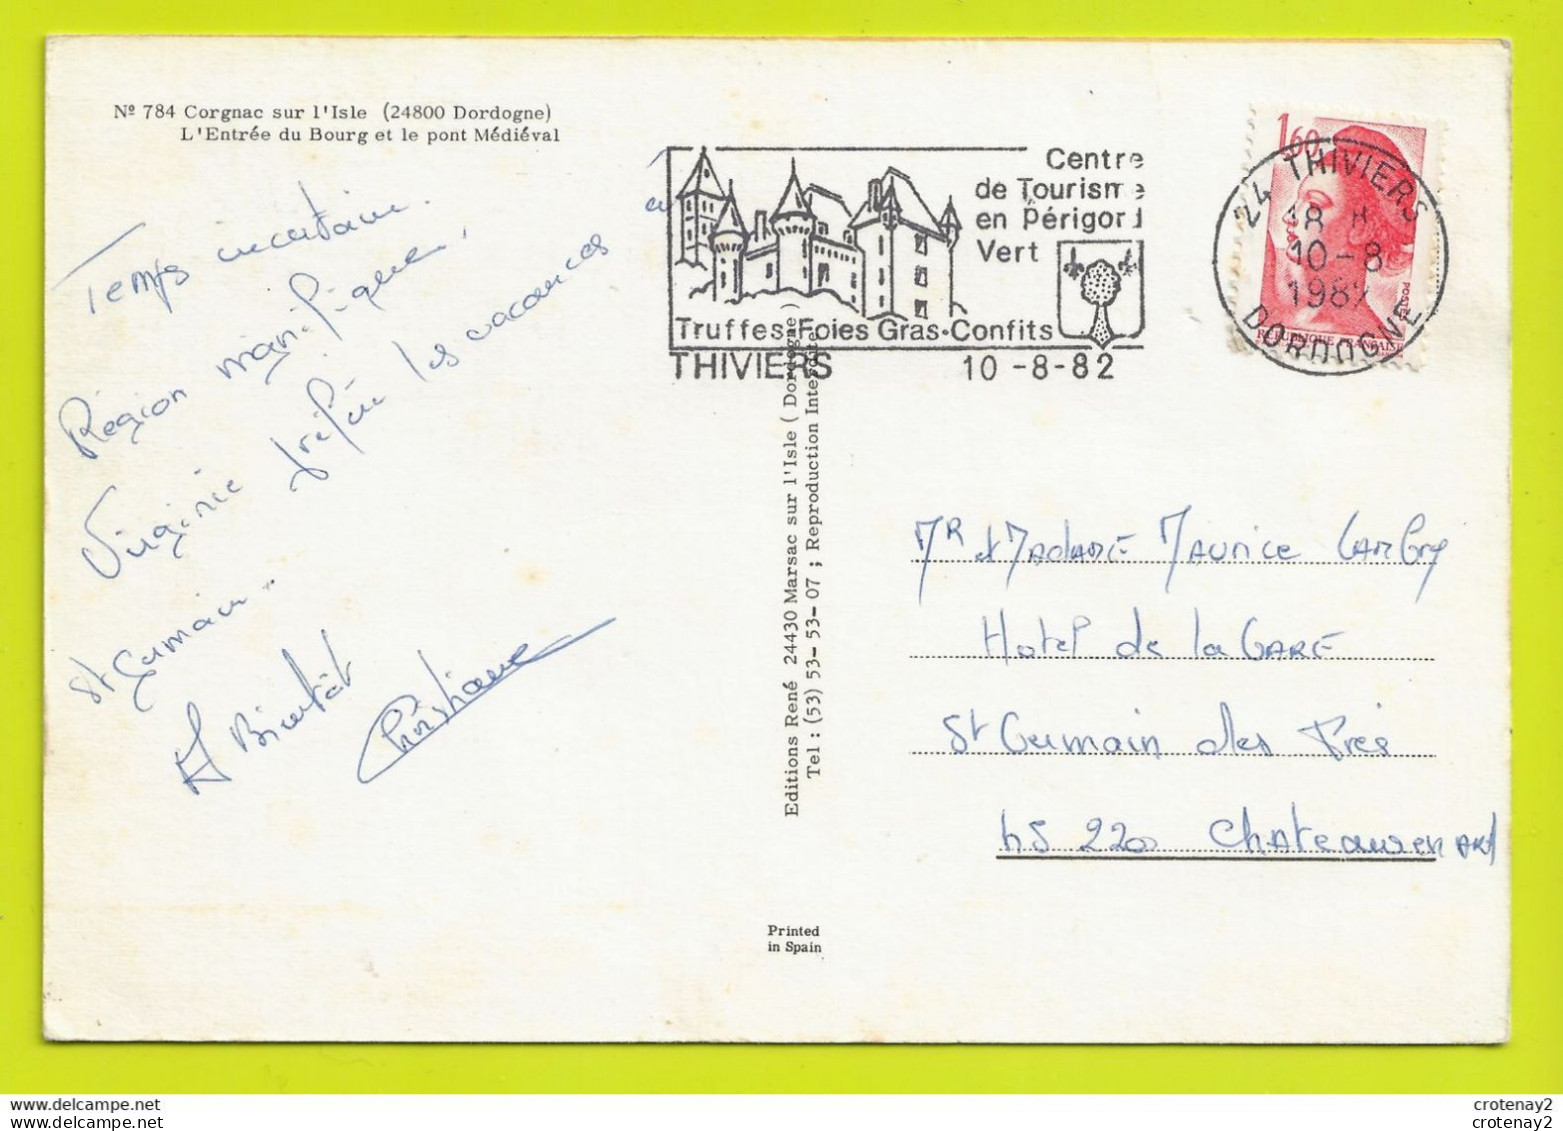 Nº 784 Corgnac sur l'Isle (24800 Dordogne)
L'Entrée du Bourg et le pont Médiéval
Temps incertain.
Région magnifique,
Virginie préfère les vacances à
St Germain.
A Bientôt
Christiane
Centre
de Tourisme
en Périgord
Vert
Truffes-Foies Gras-Confits
THIVIERS 10-8-82
1,60
POSTES
REPUBLIQUE FRANÇAISE
24 THIVIERS
18 H
10-8
1982
DORDOGNE
Editions René 24430 Marsac sur l'Isle ( Dordogne )
Tel : (53) 53-53-07 ; Reproduction Interdite
Mr et Madame Maurice
Hotel de la Gare
St Germain des Prés
45 220 Chateaurenard
Printed
in Spain
crotenay2
crotenay2